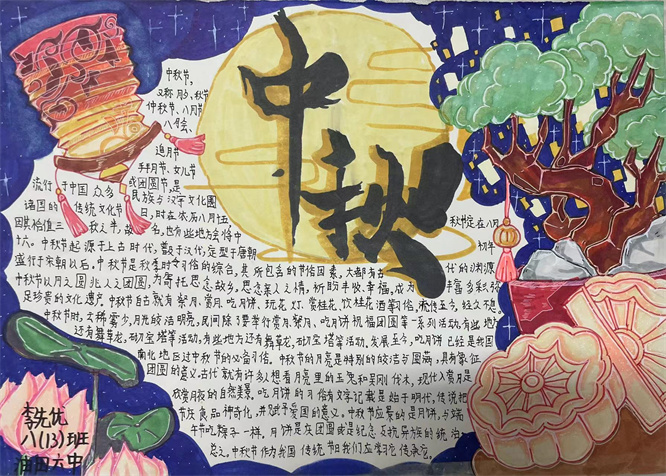 中秋
中秋节,
又称月夕、秋节
仲秋节、八月节
八月会、
追月节
拜月节、女儿节
或团圆节,是
流行于中国众多
民族与汉字文化圈
诸国的传统文化节
日,时在农历八月十五
因其恰值三秋之半,故名,也有些地方会将中
秋节定在八月
十六。中秋节起源于上古时代,普及于汉代,定型于唐朝
初年
盛行于宋朝以后。中秋节是秋季时令习俗的综合,其所包含的节俗因素,大都有古
代的渊源
中秋节以月之圆兆人之团圆,为寄托思念故乡,思念亲人之情,祈盼丰收、幸福,成为
丰富多彩弥
足珍贵的文化遗产 中秋节自古就有祭月、赏月、吃月饼、玩花灯、赏桂花、饮桂花酒等习俗,流传至今,经久不息。
中秋时节,云稀雾少,月光皎洁明亮,民间除了要举行赏月、祭月、吃月饼祝福团圆等一系列活动,有些地方
还有舞草龙,砌宝塔等活动,有些地方还有舞草龙,砌宝塔等活动,发展至今,吃月饼已经是我国
南北地区过中秋节的必备习俗。中秋节的月亮是特别的皎洁与圆满,具有象征
团圆的意义。古代就有许多人想看月亮里的玉兔和吴刚伐木,现代人赏月是
欣赏月夜的自然美景。吃月饼的习俗有文字记载是始于明代,传说把
节庆食品神奇化,并赋予爱国的意义。中秋节应景的是月饼,与端
午节的粽子一样。月饼是在团圆或是纪念反抗异族的统治
总之,中秋节作为我国传统节日我们应学习传承它。
李先优
八(13)班
油田六中